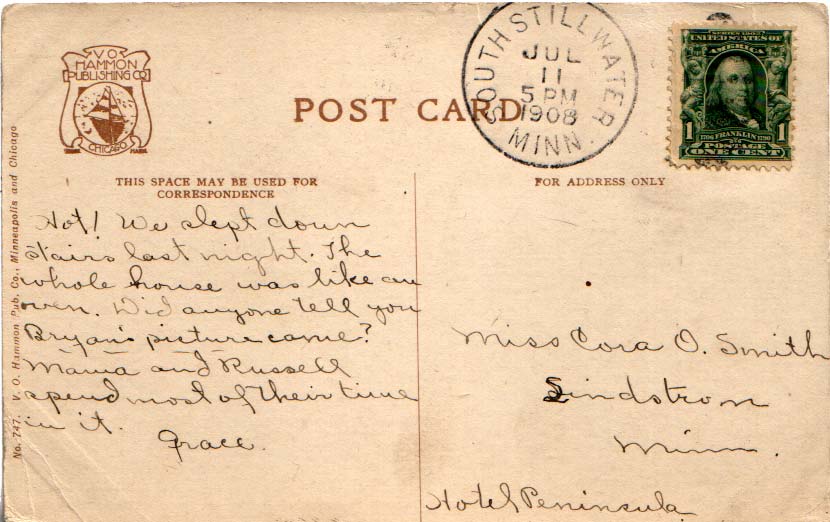 V O
HAMMON
PUBLISHING CO
CHICAGO
TRADE MARK
POST CARD
SOUTH STILLWATER
JUL
11
5 PM
1908
MINN.
SERIES 1902
UNITED STATES OF
AMERICA
1 1706 FRANKLIN 1790 1
POSTAGE
ONE CENT
THIS SPACE MAY BE USED FOR
CORRESPONDENCE
Hot! We slept down
stairs last night. The
whole house was like an
oven. Did anyone tell you
Bryan's picture came?
Mama and Russell
spend most of their time
in it.
Grace.
FOR ADDRESS ONLY
Miss Cora O. Smith
Lindstrom
Minn.
Hotel Peninsula
No. 747. V. O. Hammon Pub. Co., Minneapolis and Chicago